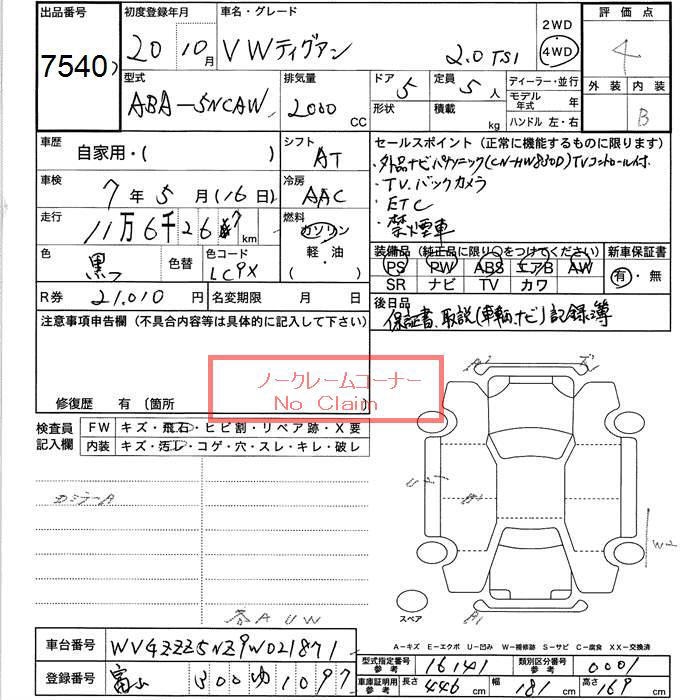 出品番号 初度登録年月 車名・グレード 2WD 評価点
7540 20 10月 VWティグアン 2.0 TSI 4WD 4
型式 排気量 ドア 定員 ディーラー・並行 外装 内装
ABA-5NCAW 2000 CC 5 5人 モデル年式 年 B
形状 積載 kg ハンドル 左・右
車歴 シフト セールスポイント (正常に機能するものに限ります)
自家用・( ) AT ・外品ナビパナソニック(CN-HW850D)TVコントロール付.
車検 冷房 ・TV.バックカメラ
7年5月(16日) AAC ・ETC
走行 燃料 ・禁煙車
11万6千26 km ガソリン
軽・油
( )
装備品 (純正品に限り○をつけてください) 新車保証書
PS PW ABS エアB AW 有・無
SR ナビ TV カワ
色 色替 色コード
黒 LC9X
後日品
保証書、取説(車輌、ナビ)記録簿
R券 21,010円 名変期限 月 日
注意事項申告欄 (不具合内容等は具体的に記入して下さい)
ノークレームコーナー
No Claim
修復歴 有 (箇所 )
検査員記入欄 FW キズ・飛石・ヒビ割・リペア跡・X要
内装 キズ・汚レ・コゲ・穴・スレ・キレ・破レ
カミラーA
各AUW
A1
W2
スペア
A-キズ E-エクボ U-凹み W-補修跡 S-サビ C-腐食 XX-交換済
車台番号 WVGZZZ5NZ9W021871
登録番号 富山 300 ゆ 1097
型式指定番号 参考 16141 類別区分番号 参考 0001
車庫証明用 参考 長さ 446 cm 幅 181 cm 高さ 169 cm